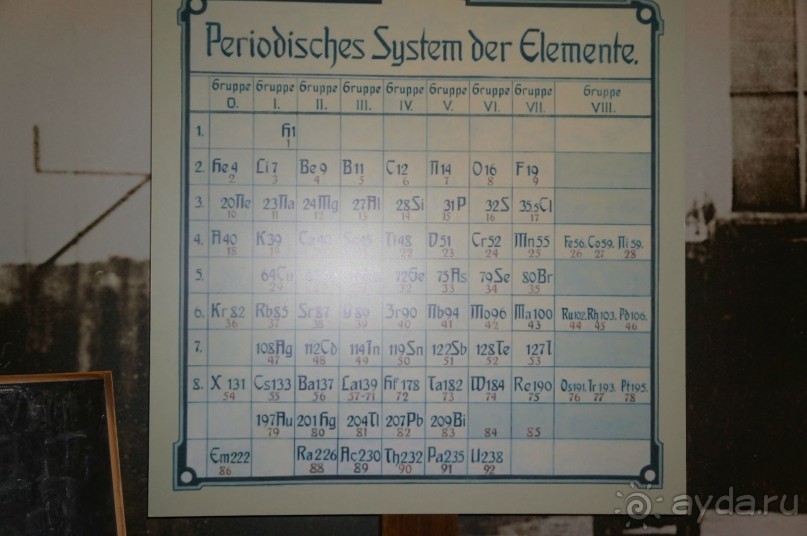 Periodisches System der Elemente.
Gruppe 0. Gruppe I. Gruppe II. Gruppe III. Gruppe IV. Gruppe V. Gruppe VI. Gruppe VII. Gruppe VIII.
1. H1
1
2. He4 Li7 Be9 B11 C12 N14 O16 F19
2 3 4 5 6 7 8 9
3. 20Ne 23Na 24Mg 27Al 28Si 31P 32S 35.5Cl
10 11 12 13 14 15 16 17
4. A40 K39 Ca40 Sc45 Ti48 V51 Cr52 Mn55 Fe56. Co59. Ni59.
18 22 23 24 25 26 27 28
5. 64Cu 72Ge 75As 79Se 80Br
29 32 33 34 35
6. Kr82 Rb85 Sr87 Y89 Zr90 Nb94 Mo96 Ma100 Ru102. Rh103. Pd106.
36 37 38 39 40 41 42 43 44 45 46
7. 108Ag 112Cd 114In 119Sn 122Sb 128Te 127I
47 48 49 50 51 52 53
8. X131 Cs133 Ba137 La139 Hf178 Ta182 W184 Re190 Os191. Ir193. Pt195.
54 55 56 57-71 72 73 74 75 76 77 78
197Au 201Hg 204Tl 207Pb 209Bi
79 80 81 82 83 84 85
Em222 Ra226 Ac230 Th232 Pa235 U238
86 88 89 90 91 92
ayda.ru